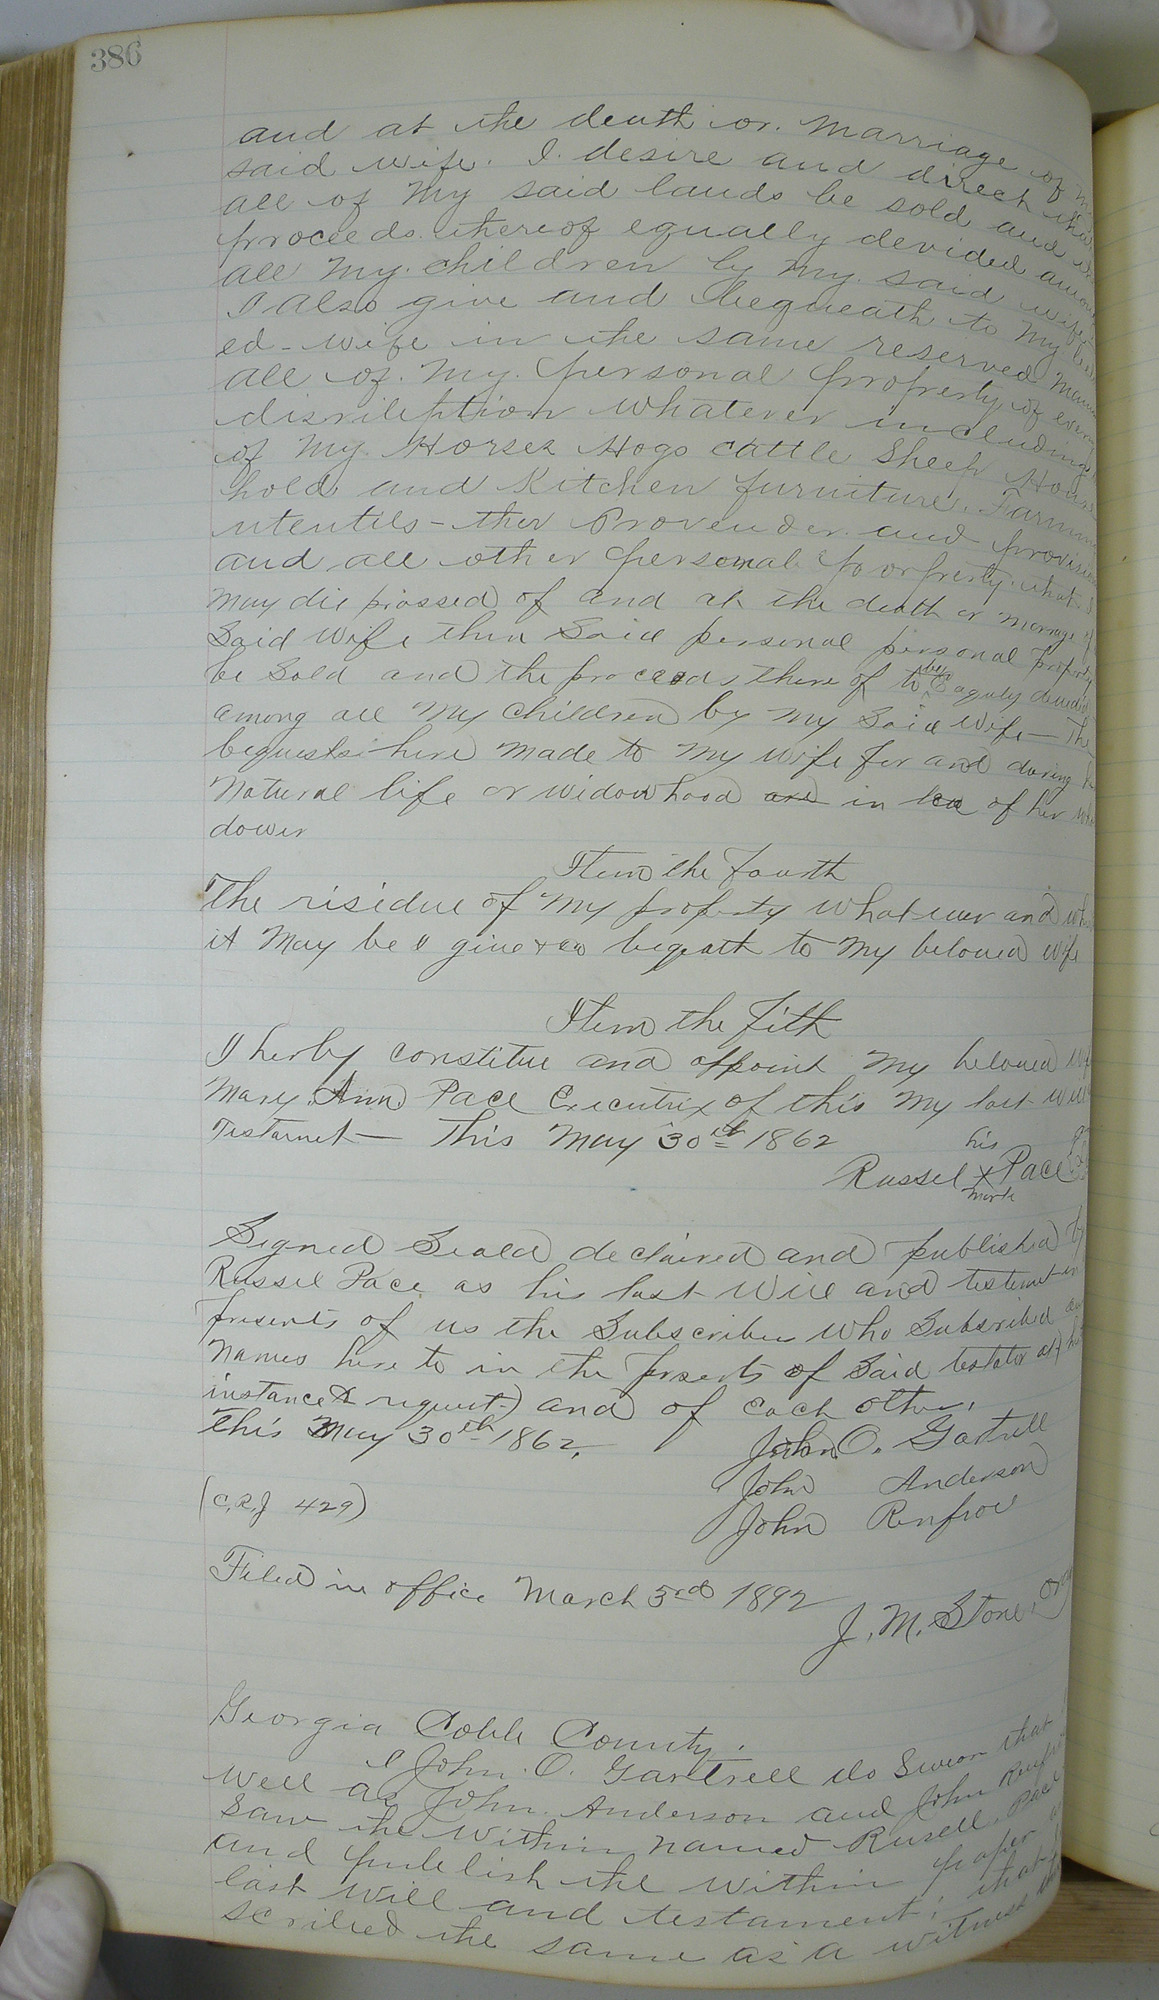 386
and at the death or. Marriage of my
said wife. I. desire and direct that
all of My said lands be sold and the
proceeds thereof equally devided among
all My. children by My said wife.
I also give and bequeath to My
ed-wife in the same reserved Man
all of. My. personal property of every
disription whatever including
of My Horses Hogs cattle Sheep Hous
hold and Kitchen furniture. Farming
utentils-ther Provender and provision
and all other personal poorpresty. what I
May die prossed of and at the death or marrage of
Said wife then Said personal personal property
be Sold and the proceeds there of to be Eaquly devided
among all My children by My Said wife - The
bequests here Made to My wife for and during
Natural life or widowhood are in lea of her
dower
Item the fourth
The risidue of My property whatever and wh
it May be I give & bequath to My beloved wife
Item the fith
I herby constitue and appoint My beloved
Mary. Ann Pace Executrix of this My last will
Testamet- This May 30th 1862
his
Russel X Pace
mark
Signed Seald declaired and published by
Russel Pace as his last Will and testemet in
presents of us the Subscribers who Subsribed
Names here to in the presents of Said testator at his
instance & request) and of each other.
this May 30th 1862.
John O. Gartrell
John Anderson
(C.R.J 429)
John Renfroe
Filed in office March 3rd 1892
J. M. Stone, Ord
Georgia Cobb County.
I John. O. Gartrell do Swear that
well as John. Anderson and John Renfro
Saw the within named Rusell. Pace
and publish the within paper
last will and testament; that
scribed the same as a witness